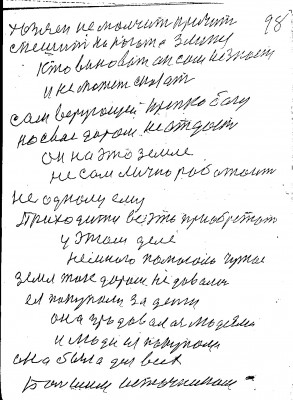 хозяен не молчит кричит 98
спешит на рогата Злину
Кто виноват он сам не знает
и не может сказат
сам верующей крепко богу
но свае даром не отдаст
он на это земле
не сам лично работаит
не одному ему
Приходити всё эть приобретат
у этом деле
немного помогала чужае
земля тоже даром не давалас
ея покупали за денги
она продавалас людьми
и люди ея покупали
она была для всех
Большим источником